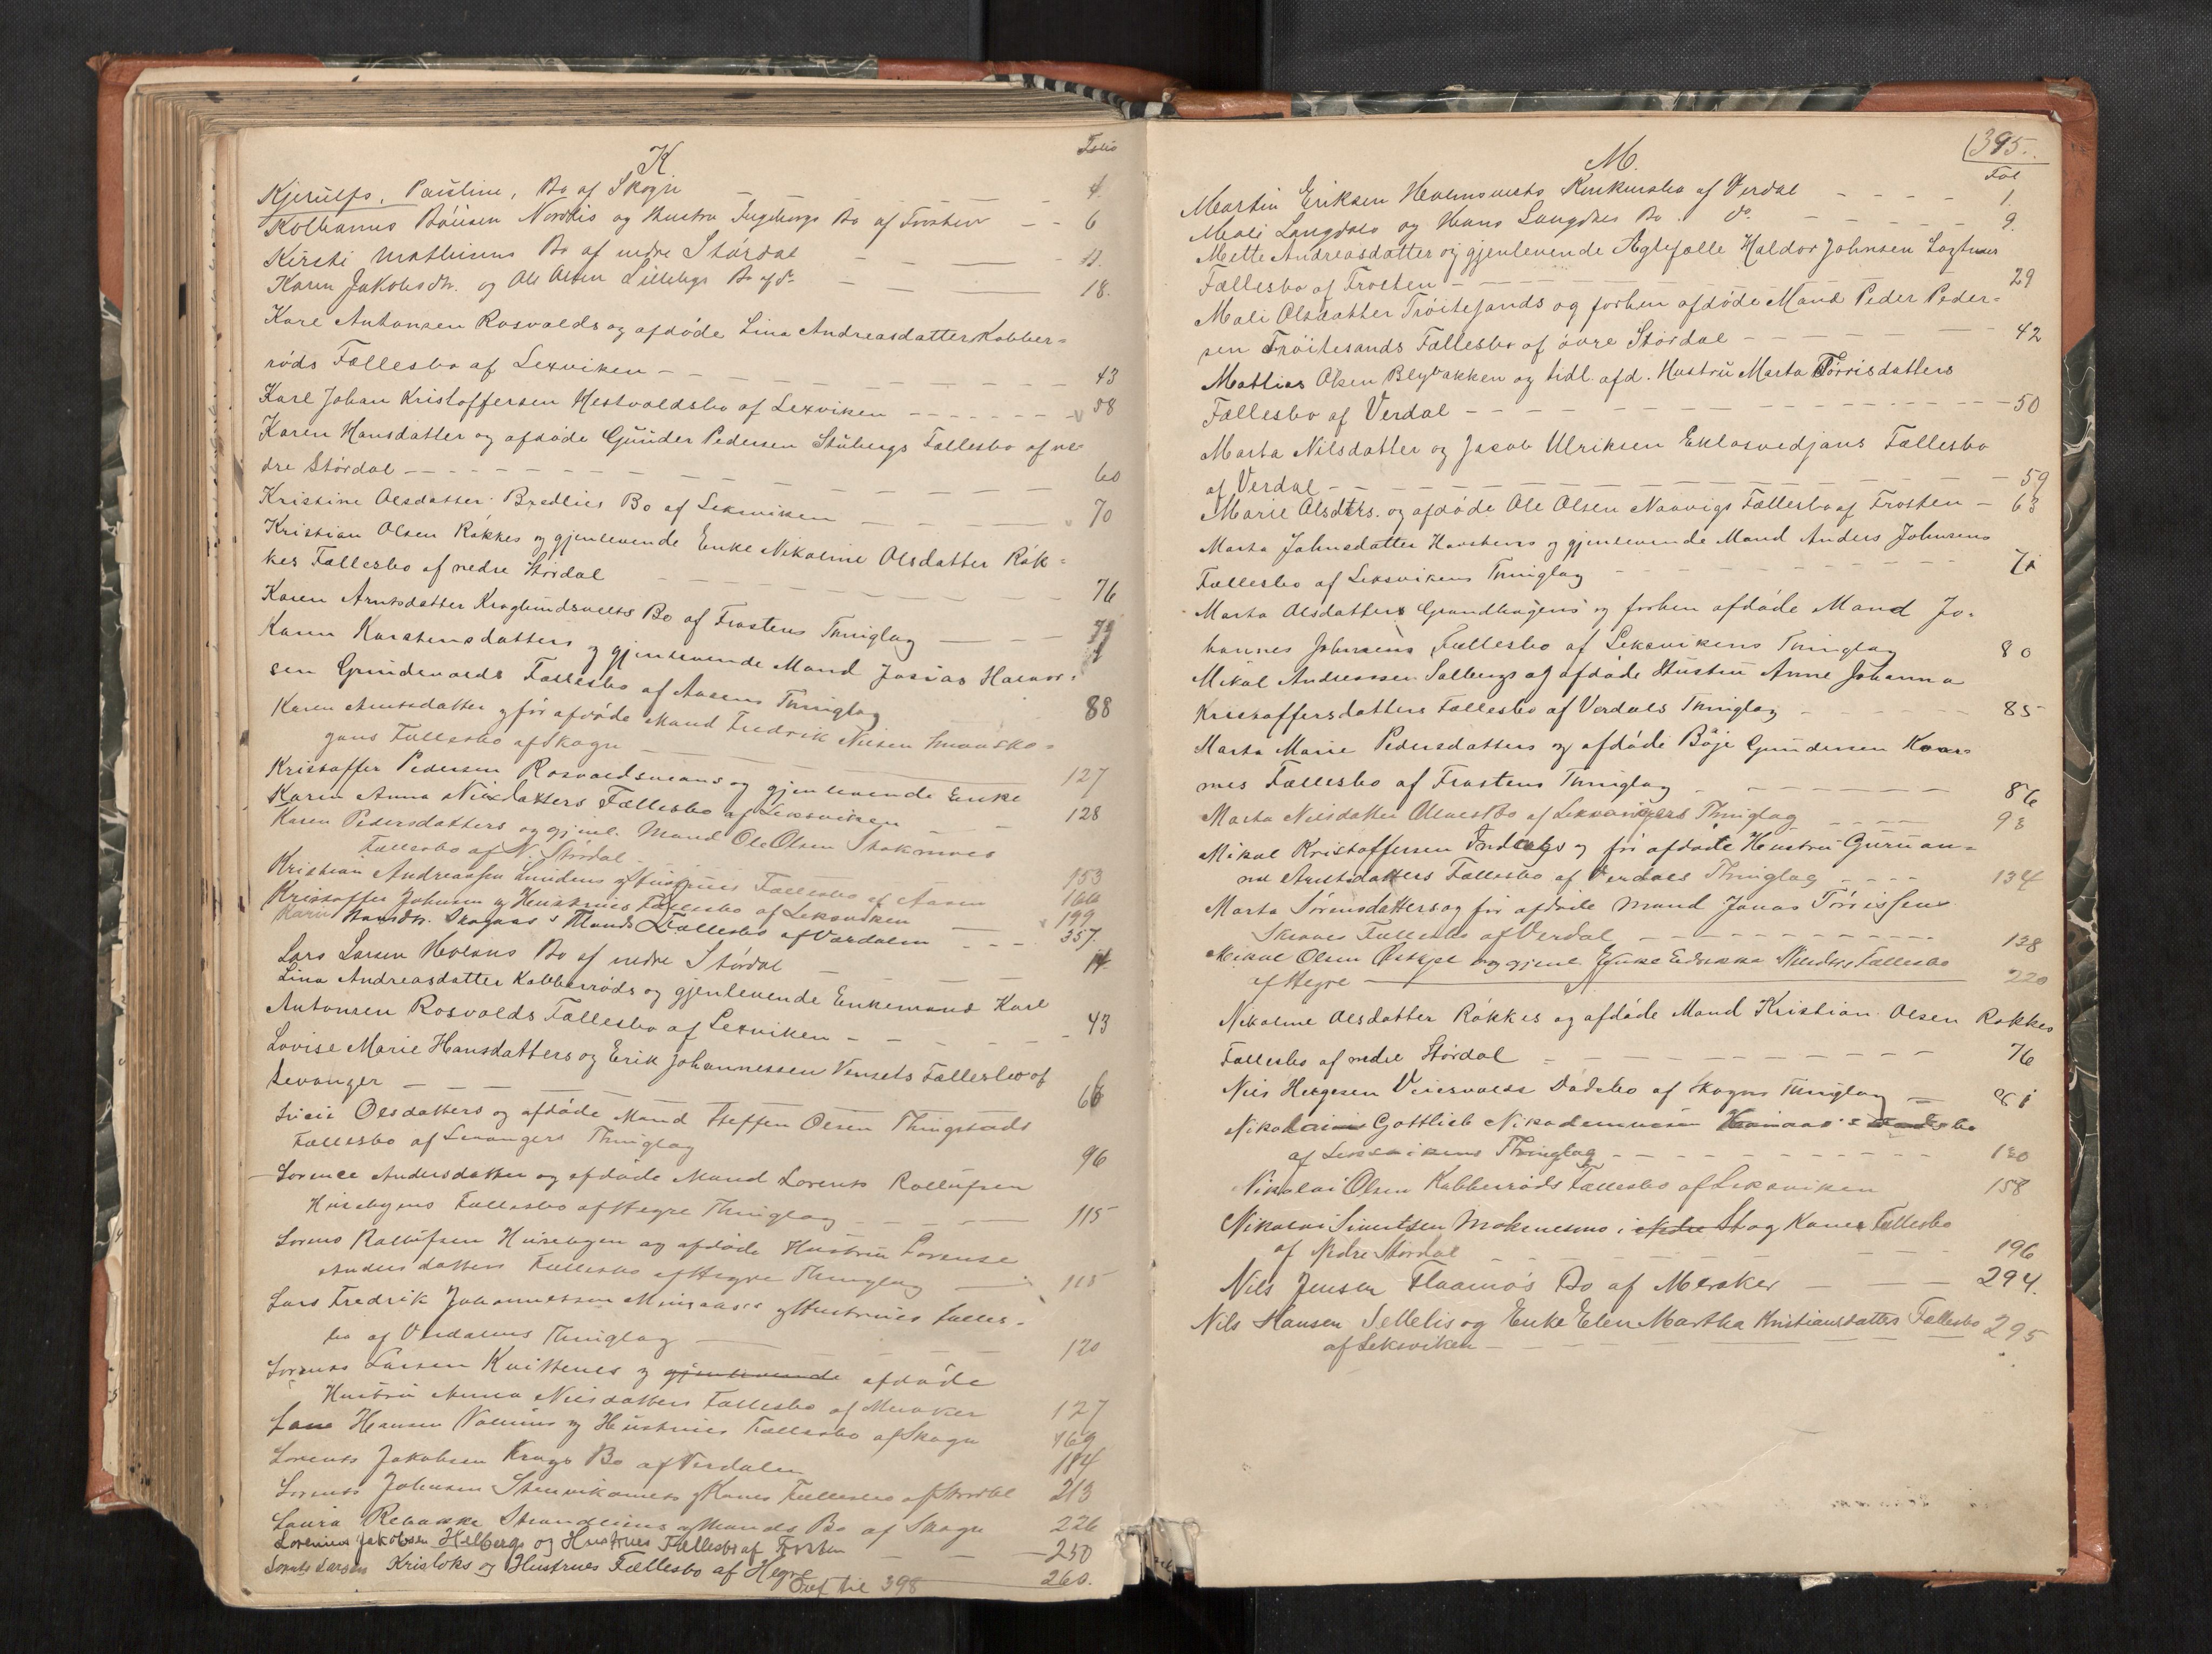 K
Folio
Kjerulfs, Pauline, Bo af Skogn - - - 4.
Kolbanus Bóusen Nordlis og Hustru Ingeborgs Bo af Frosten - - 6
Kirsti Mathisens Bo af nedre Stördal - - - 11.
Karen Jakobsdtr. og Ole Olsen Lillebys Bo af do - - 18.
Karl Antonsen Rosvolds og afdöde Lina Andreasdatter Kobber=
röds Fællesbo af Lexviken - - - 43
Karl Johan Kristoffersen Hestvoldsbo af Lexviken - - - 58
Karen Hansdatter og afdöde Gunder Pedersen Stubergs Fællesbo af ne
dre Stördal - - - 60
Kristine Olsdatter Brædlies Bo af Leksviken - - 70
Kristian Olsen Råkkes og gjenlevende Enke Nikoline Olsdatter Råk=
kes Fællesbo af nedre Stördal - - - 76
Karen Arntsdatter Kroglundsvelts Bo af Frostens Thinglag - - - 79
Karen Karstensdatters og gjenlevende Mand Josias Halvor=
sen Grundevolds Fællesbo af Aasens Thinglag 88
Karen Arntsdatter og før afdöde Mand Fredrik Nilsen Smaasko=
gens Fællesbo af Skogn - 127
Kristoffer Pedersen Rosvoldsmeans og gjenlevende Enke
Karen Anna Nilsdatters Fællesbo af Leksviken - 128
Karen Pedersdatters og gjenl. Mand Ole Olsen Stokmoes
Fællesbo af N. Stördal - 153
Kristian Andreassen Lundens og Hustrues Fællesbo af Aasen 166
Kristoffer Johnsen og Hustrues Fællesbo af Leksviken - 199
Karin Hansdtr. Skogaas's Mands Fællesbo af Værdalen - - - 357.
Lars Larsen Holans Bo af nedre Stördal - 14.
Lina Andreasdatter Kobberröds og gjenlevende Enkemand Karl
Antonsen Rosvolds Fællesbo af Lexviken - - - 43
Lovise Marie Hansdatters og Erik Johannessen Vensets Fællesbo af
Levanger - - - 66
Lucie Olsdatters og afdöde Mand Steffen Olsen Thingstads
Fællesbo af Levangers Thinglag 96
Lorence Andersdatter og afdöde Mand Lorents Rollufsen
Husebyens Fællesbo af Hegre Thinglag - - - 115
Lorens Rollufsen Husebyen og afdöde Hustru Lorense
Andersdatters Fællesbo af Hegre Thinglag - 115
Lars Fredrik Johannessen Minsaas's og Hustrues Fælles-
bo af Værdalens Thinglag - - - 120
Lorents Larsen Kvittenes og gjenlevende afdöde
Hustru Anna Nilsdatters Fællesbo af Meraker 127
Lars Hansen Vollens og Hustrues Fællesbo af Skogn 169
Lorents Jakobsen Krags Bo af Verdalen 184
Lorents Johnsen Stenvikomets og Kones Fællesbo af Stördal 213
Laura Rebækka Strandlins og Mands Bo af Skogn 226
Lorentius Jakobsen Helbergs og Hustrues Fællesbo af Frosten - - 250
Lorents Larsen Kristoks og Hustrues Fællesbo af Hegre 260.
Forts til 398
395.
M.
Fol
Martin Eriksen Holmsveets Konkursbo af Verdal - - - - 1.
Mali Langdals og Hans Langdals Bo do - - - - 9.
Mette Andreasdatter og gjenlevende Ægtefælle Haldor Johnsen Logtuns
Fællesbo af Frosten - - - 29
Mali Olsdatter Tröitesands og forhen afdöde Mand Peder Peder=
sen Tröitesands Fællesbo af övre Stördal - - - 42
Mathias Olsen Blybakken og tidl. afd. Hustru Marta Törrisdatters
Fællesbo af Verdal - - - 50
Marta Nilsdatter og Jacob Ulriksen Eklosvedjans Fællesbo
af Verdal - - - 59
Marie Olsdtrs. og afdöde Ole Olsen Naavigs Fællesbo af Frosten - 63
Marta Johnsdatter Haustens og gjenlevende Mand Anders Johnsens
Fællesbo af Leksvikens Thinglag - - - 71
Marta Olsdatters Grandhagens og forhen afdöde Mand Jo=
hannes Johnsens Fællesbo af Leksvikens Thinglag 80
Mikal Andreassen Solbergs og afdöde Hustru Anne Johanna
Kristoffersdatters Fællesbo af Verdals Thinglag - - - 85
Marta Marie Pedersdatters og afdöde Böje Gundersen Kvar=
mes Fællesbo af Frostens Thinglag - - - 86
Marta Nilsdatter Alvests Bo af Leksvigens Thinglag - - - 93
Mikal Kristoffersen Indalsgs og før afdöde Hustru Guruan=
na Arntsdatters Fællesbo af Verdals Thinglag - - - - 134
Marta Sörensdatters og før afdöde Mand Jonas Törrissens
Skeaves Fællesbo af Verdal - - - 138
Mikal Olsen og gjenl. Enke Fællesbo
af Hegre 220
Nikoline Olsdatter Råkkes og afdöde Mand Kristian Olsen Råkkes
Fællesbo af nedre Stördal - - - 76
Nils Helgesen Veiesvolds Dödsbo af Skogns Thinglag - 81
Nikolai Gottlieb Nikodemussen bo
af Leksvikens Thinglag - - - 130
Nikolai Olsen Kobberröds Fællesbo af Leksviken 158
Nikolai Sivertsen Moknesmo i Nedre St og Kones Fællesbo
af Nedre Stördal - - - 196
Nils Jensen Flaamo's Bo af Meraker - - - 294.
Nils Hansen Settelis og Enke Elen Martha Kristiansdatters Fællesbo 295
af Leksviken - - -